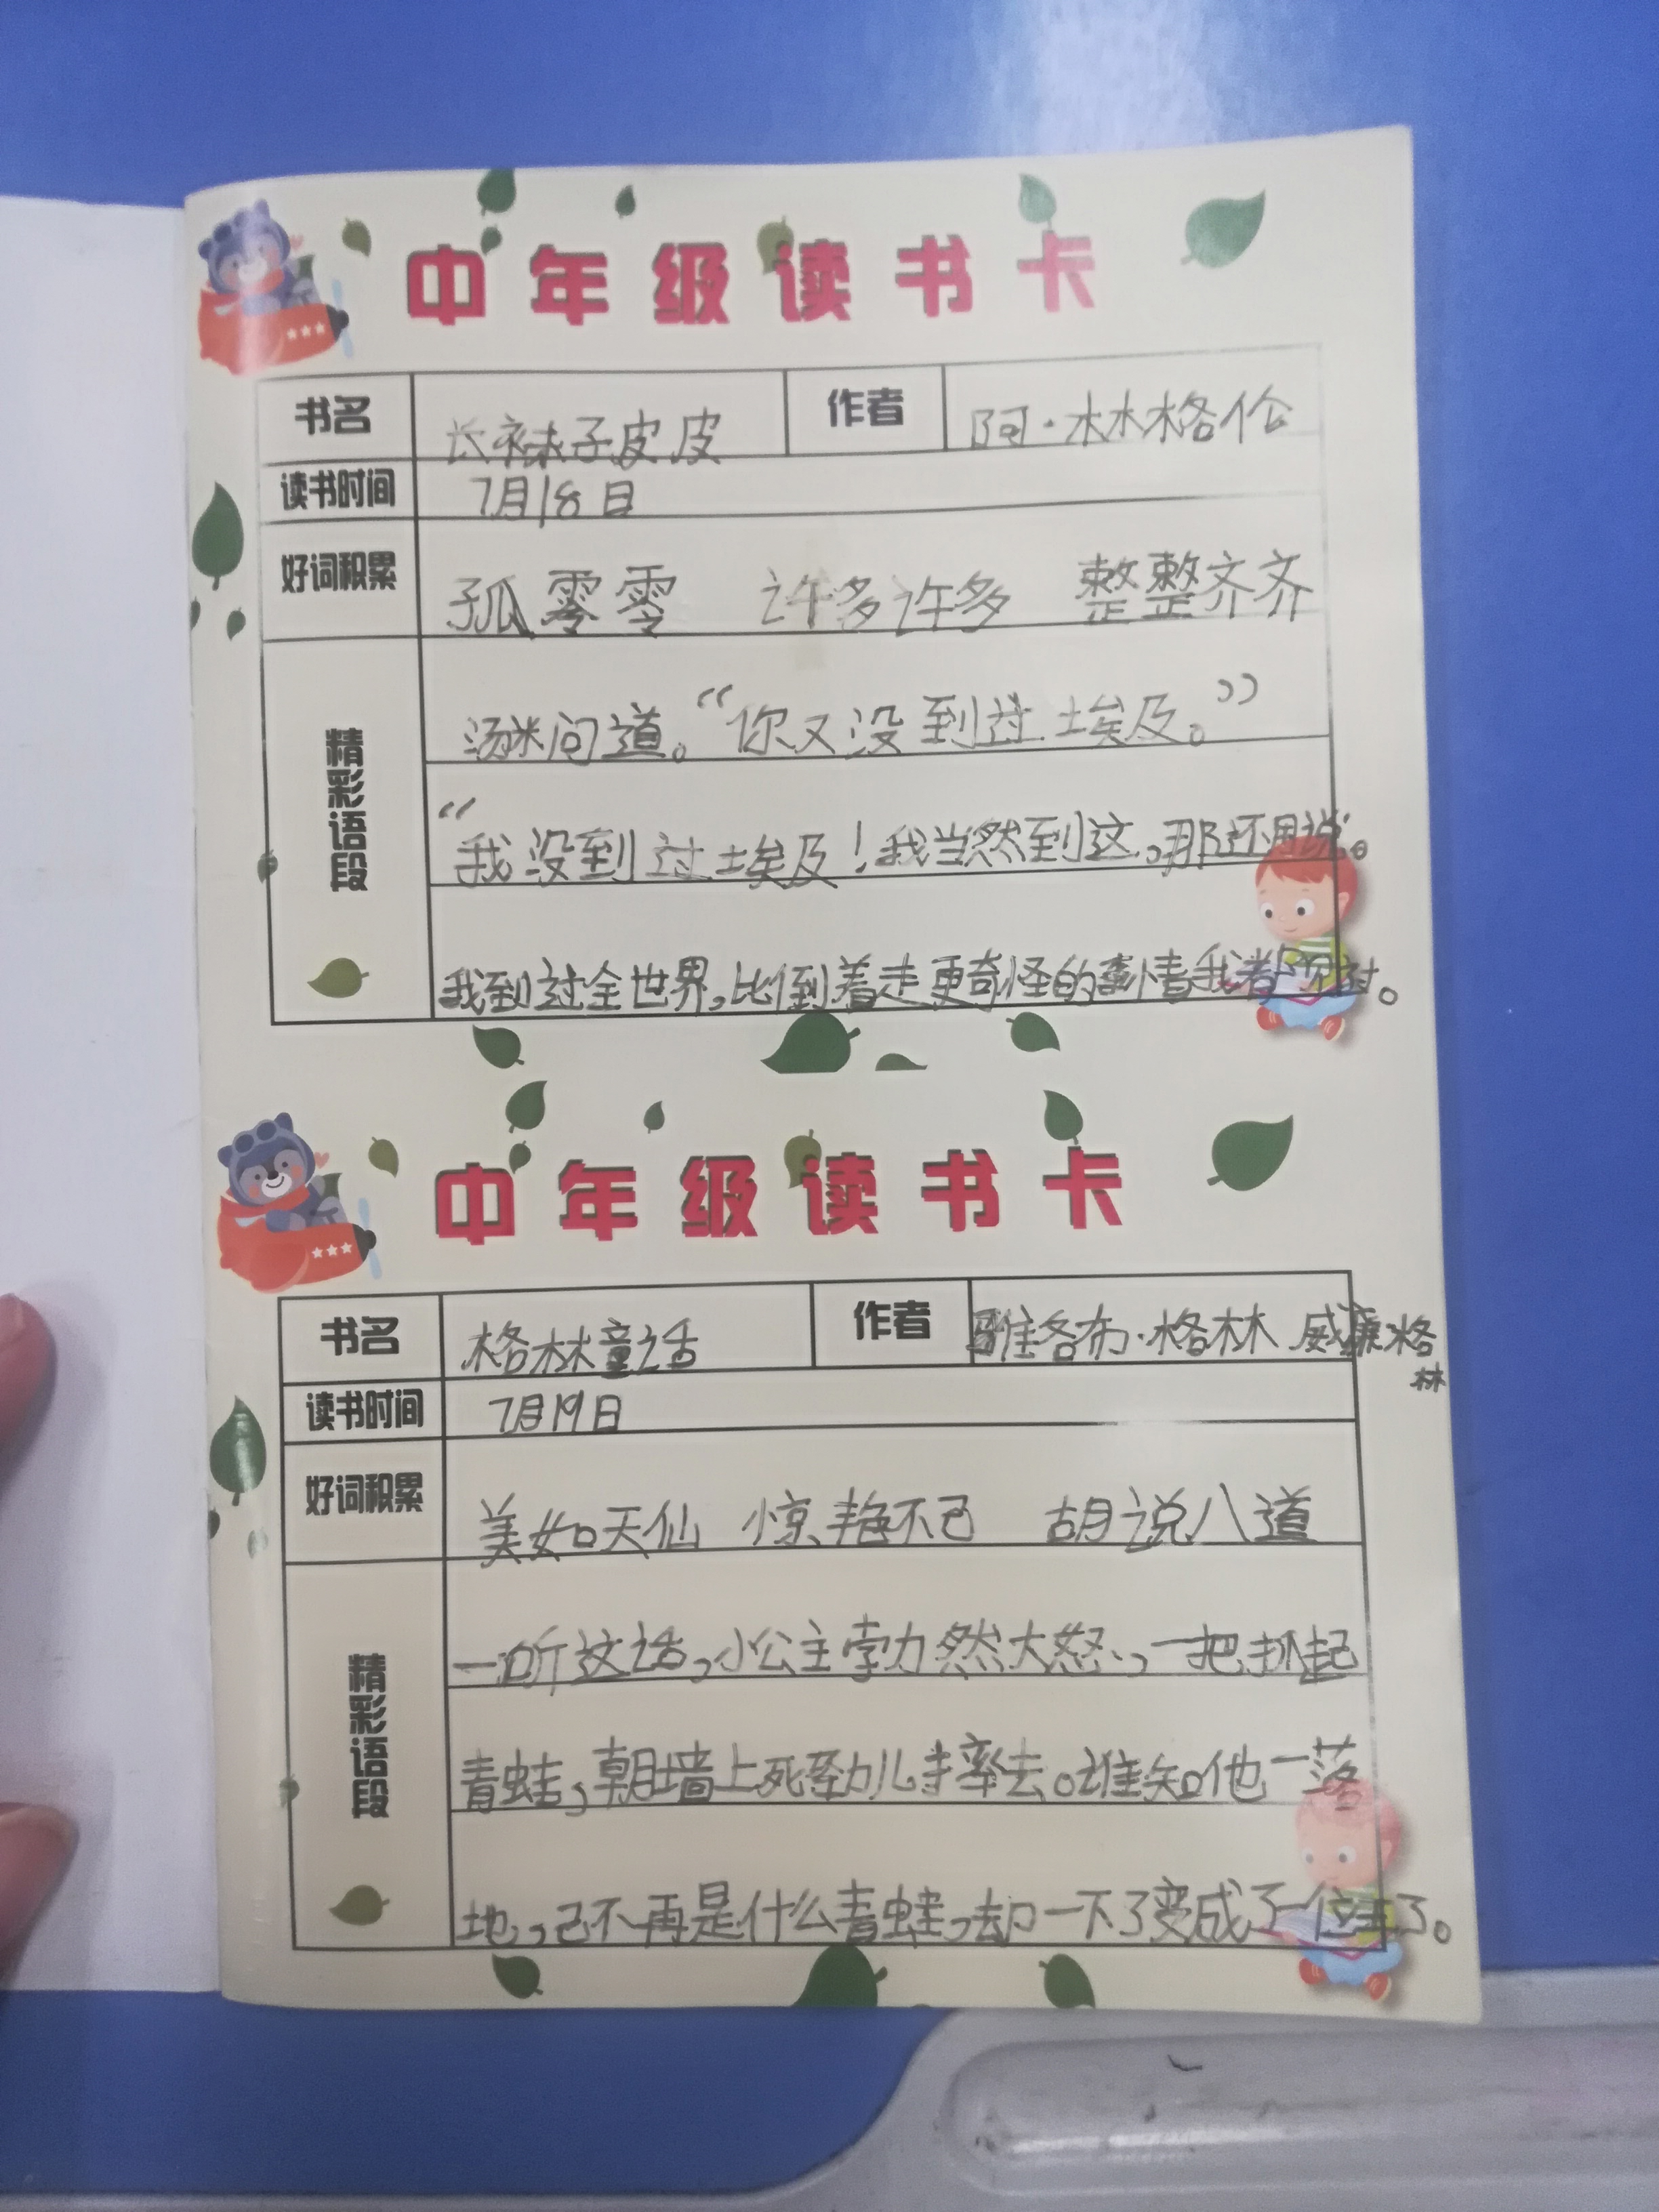 中年级读书卡
书名 长袜子皮皮 作者 阿·林格伦
读书时间 7月18日
好词积累 孤零零 许多许多 整整齐齐
精彩语段
汤米问道。“你又没到过埃及。”
“我没到过埃及！我当然到这,那还用说。
我到过全世界,比倒着走更奇怪的事情我都见过。
中年级读书卡
书名 格林童话 作者 雅各布·格林 威廉格
林
读书时间 7月19日
好词积累 美如天仙 惊艳不已 胡说八道
精彩语段
一听这话,小公主勃然大怒,一把抓起
青蛙,朝墙上死劲儿摔去。谁知他一落
地,已不再是什么青蛙,却一下了变成了一位王子。